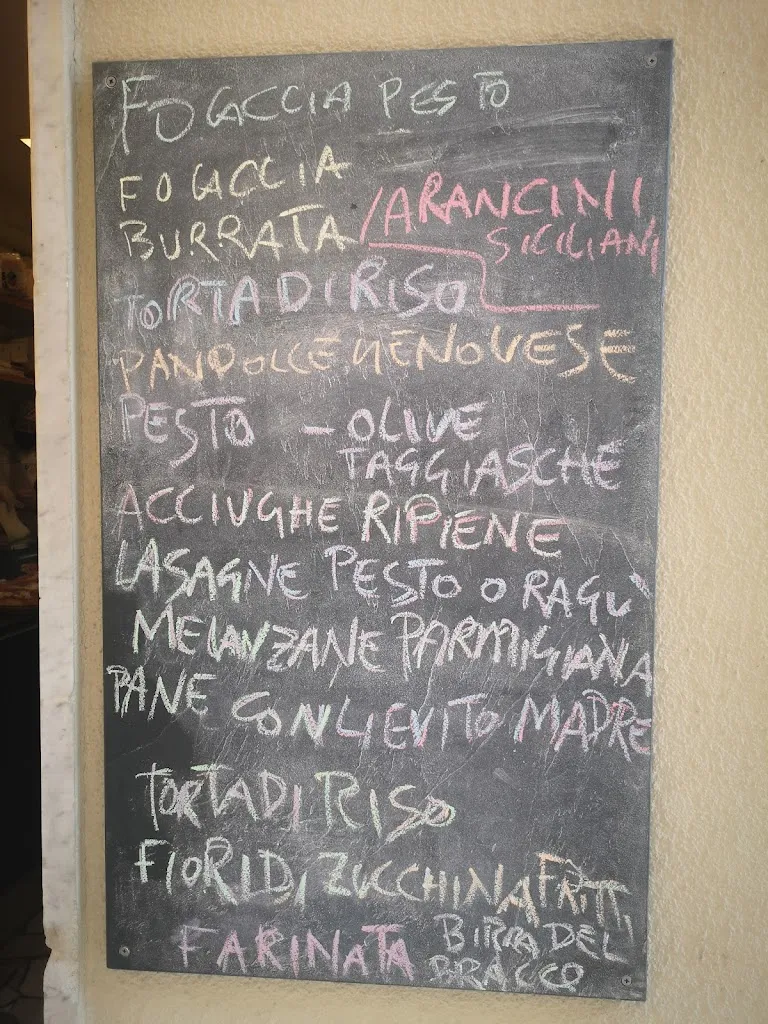 FOGACCIA PESTO
FOGACCIA
BURRATA / ARANCINI
SICILIANI
TORTA DI RISO
PANDOLCE GENOVESE
PESTO - OLIVE
TAGGIASCHE
ACCIUGHE RIPIENE
LASAGNE PESTO O RAGÙ
MELANZANE PARMIGIANA
PANE CON LIEVITO MADRE
TORTA DI RISO
FIORI DI ZUCCHINA FRITTI
FARINATA BIRRA DEL
BRACCO